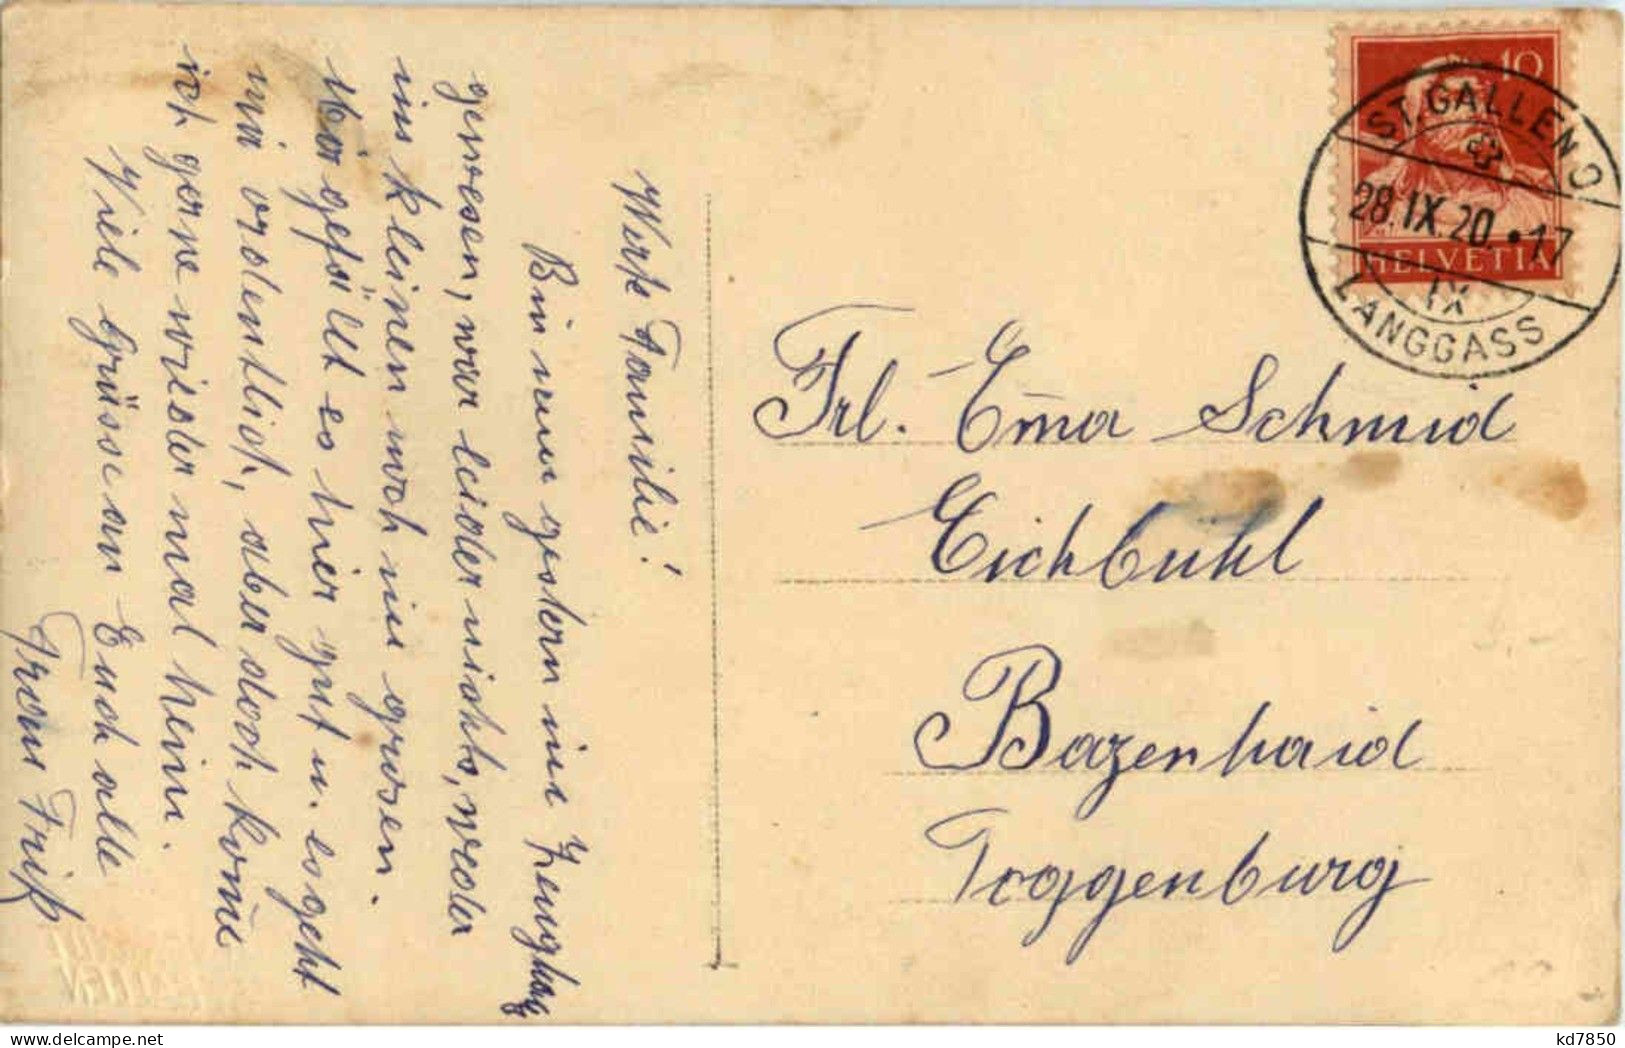 Werte Familie!
Bin nun gestern im Zeughaus
gewesen, war leider nichts, weder
im kleinen noch im grosen.
Mir gefällt es hier gut u. es geht
mir ordentlich, aber doch kome
ich gerne wieder mal heim.
Viele Grüsse an Euch alle
Frau Friß
10
ST. GALLEN 9
28.IX.20.•17
IX
LANGGASS
HELVETIA
Frl. Ema Schmid
Eichbühl
Bazenhaid
Toggenburg
kd7850